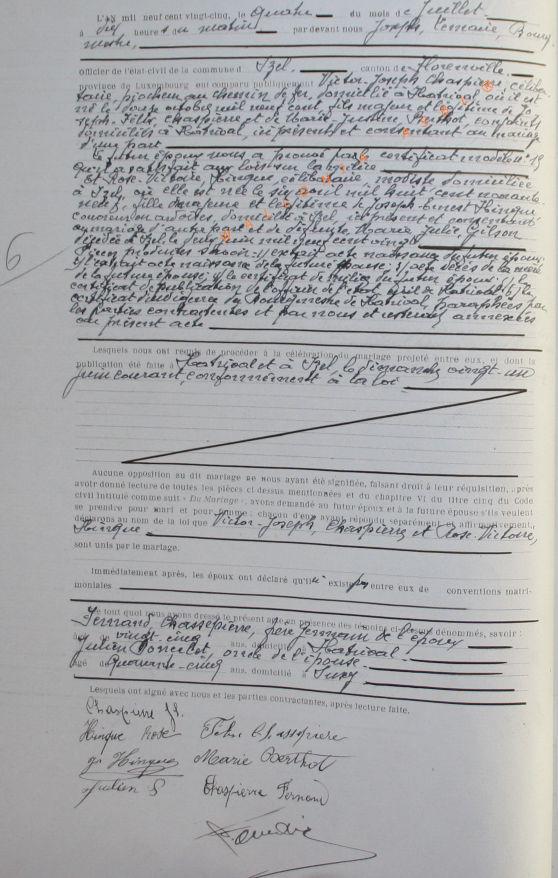 L'AN mil neuf cent vingt-cinq, le quatre du mois de Juillet
à dix heures du matin par devant nous Joseph, Lemaire, Bourg
mestre,
officier de l'état-civil de la commune d' Izel, canton de Florenville.
province de Luxembourg ont comparu publiquement Victor-Joseph Chaspierre, céliba-
taire, piocheur au chemin de fer, domicilié à où il est
né le douze octobre mil neuf cent, fils majeur et légitime de Jo-
seph-Félix Chaspierre et de Marie-Justine conjoints
domiciliés à ici présents et consentant au mariage
d'une part
Le futur époux nous a prouvé par le certificat modèle n° 19
qu'il a satisfait aux lois sur la milice.
Et Rose-Victoire, Hinque, célibataire modiste domiciliée
à Izel, où elle est née le six août mil huit cent nonante
neuf, fille majeure et légitime de Joseph-Ernest Hinque
domicilié à Izel, ici présent et consentant
au mariage d'autre part et de défunte Marie Julie Gilson
décédée à Izel le juin mil neuf cent vingt
acte naissance du futur époux;
acte naissance de la future épouse; acte décès de la mère
de la future épouse; le certificat de milice du futur époux;
certificat de publication de l'officier de l'état civil de
certificat d'indigence du Bourgmestre de paraphées par
les parties contractantes et par nous et resteront annexées
au présent acte
6
Lesquels nous ont requis de procéder à la célébration du mariage projeté entre eux, et dont la
publication été faite à et à Izel, le dimanche vingt-un
juin courant conformément à la loi
Aucune opposition au dit mariage ne nous ayant été signifiée, faisant droit à leur réquisition, après
avoir donné lecture de toutes les pièces ci-dessus mentionnées et du chapitre VI du titre cinq du Code
civil intitulé comme suit « Du Mariage », avons demandé au futur époux et à la future épouse s'ils veulent
se prendre pour mari et pour femme; chacun d'eux ayant répondu séparément et affirmativement,
déclarons au nom de la loi que Victor-Joseph, Chaspierre et Rose-Victoire,
Hinque
sont unis par le mariage.
Immédiatement après, les époux ont déclaré qu'il n' existe pas entre eux de conventions matri-
moniales
De tout quoi nous avons dressé le présent acte en présence des témoins ci-dessous dénommés, savoir:
Fernand, Chassepierre, frère germain de l'époux
âgé de vingt-cinq ans, domicilié à
Julien Poncelot, oncle de l'épouse
âgé de quarante-cinq ans, domicilié à Suxy
Lesquels ont signé avec nous et les parties contractantes, après lecture faite.
Chaspierre
Hinque Rose Félix Chasspierre
Hinque Marie Berthot
Julien P Chaspierre Fernand